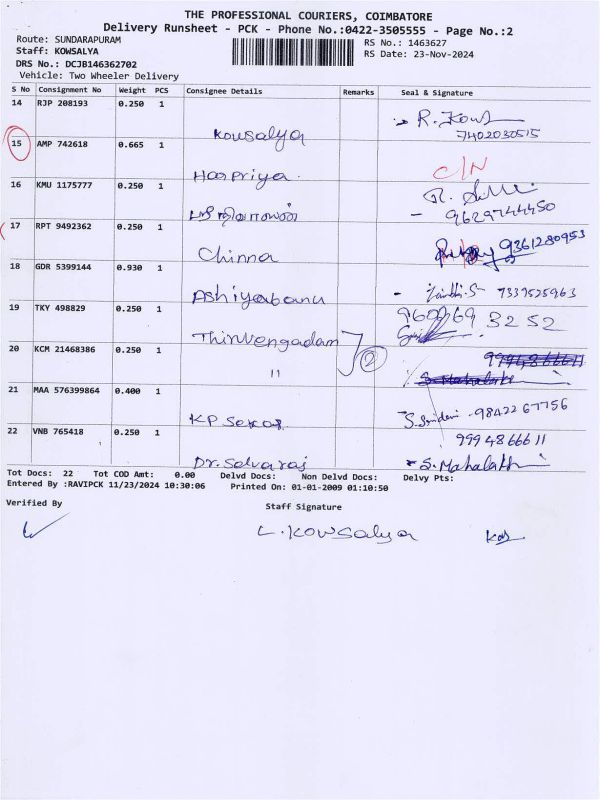 THE PROFESSIONAL COURIERS, COIMBATORE
Delivery Runsheet - PCK - Phone No.:0422-3505555 - Page No.:2
Route: SUNDARAPURAM
RS No.: 1463627
Staff: KOWSALYA
RS Date: 23-Nov-2024
DRS No.: DCJB146362702
Vehicle: Two Wheeler Delivery
S No Consignment No Weight PCS Consignee Details Remarks Seal & Signature
14 RJP 208193 0.250 1 Kousalya R. Kows
7402030515
15 AMP 742618 0.665 1 Haspriya C/N
16 KMU 1175777 0.250 1
9629744450
17 RPT 9492362 0.250 1 Chinna 9361280953
18 GDR 5399144 0.930 1 Ashiyabanu 7339525963
19 TKY 498829 0.250 1 Thirvengadam 3252
20 KCM 21468386 0.250 1 " 2
21 MAA 576399864 0.400 1 KP Sekar 98422 67756
22 VNB 765418 0.250 1 Dr. Selvaraj 9994866611
S. Mahalakhi
Tot Docs: 22 Tot COD Amt: 0.00 Delvd Docs: Non Delvd Docs: Delvy Pts:
Entered By :RAVIPCK 11/23/2024 10:30:06 Printed On: 01-01-2009 01:10:50
Verified By
Staff Signature
L. Kowsalya